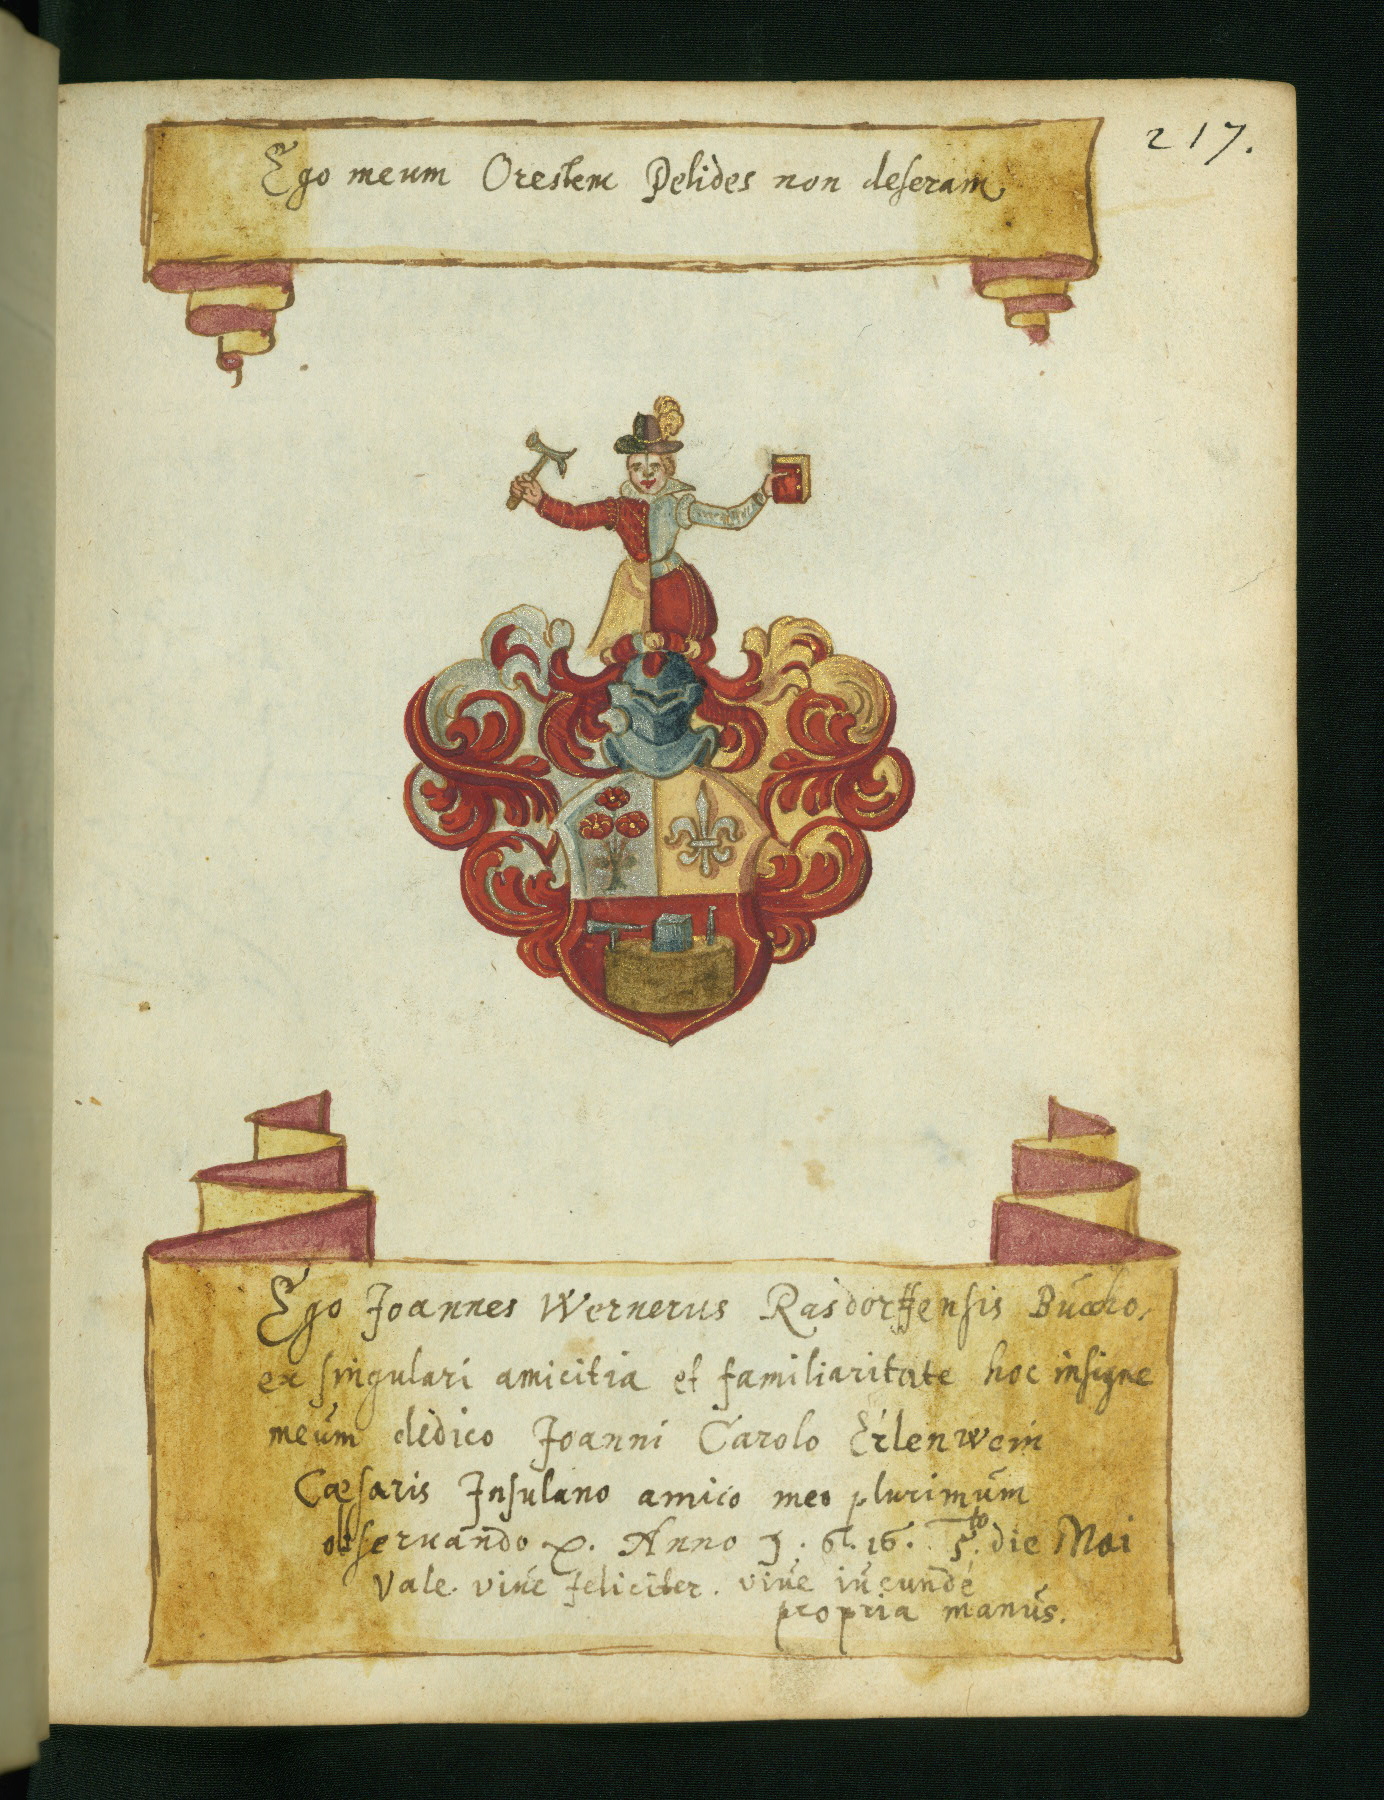 217.
Ego meum Orestem Pelides non deseram
Ego Joannes Wernerus Rasdorffensis Bucho,
ex singulari amicitia et familiaritate hoc insigne
meum dedico Joanni Carolo Erlenwein
Cæsaris Insulano amico meo plurimum
observando Anno 1.6.16. 5.to die Mai
Vale. vive feliciter. vive iucunde
propria manus.